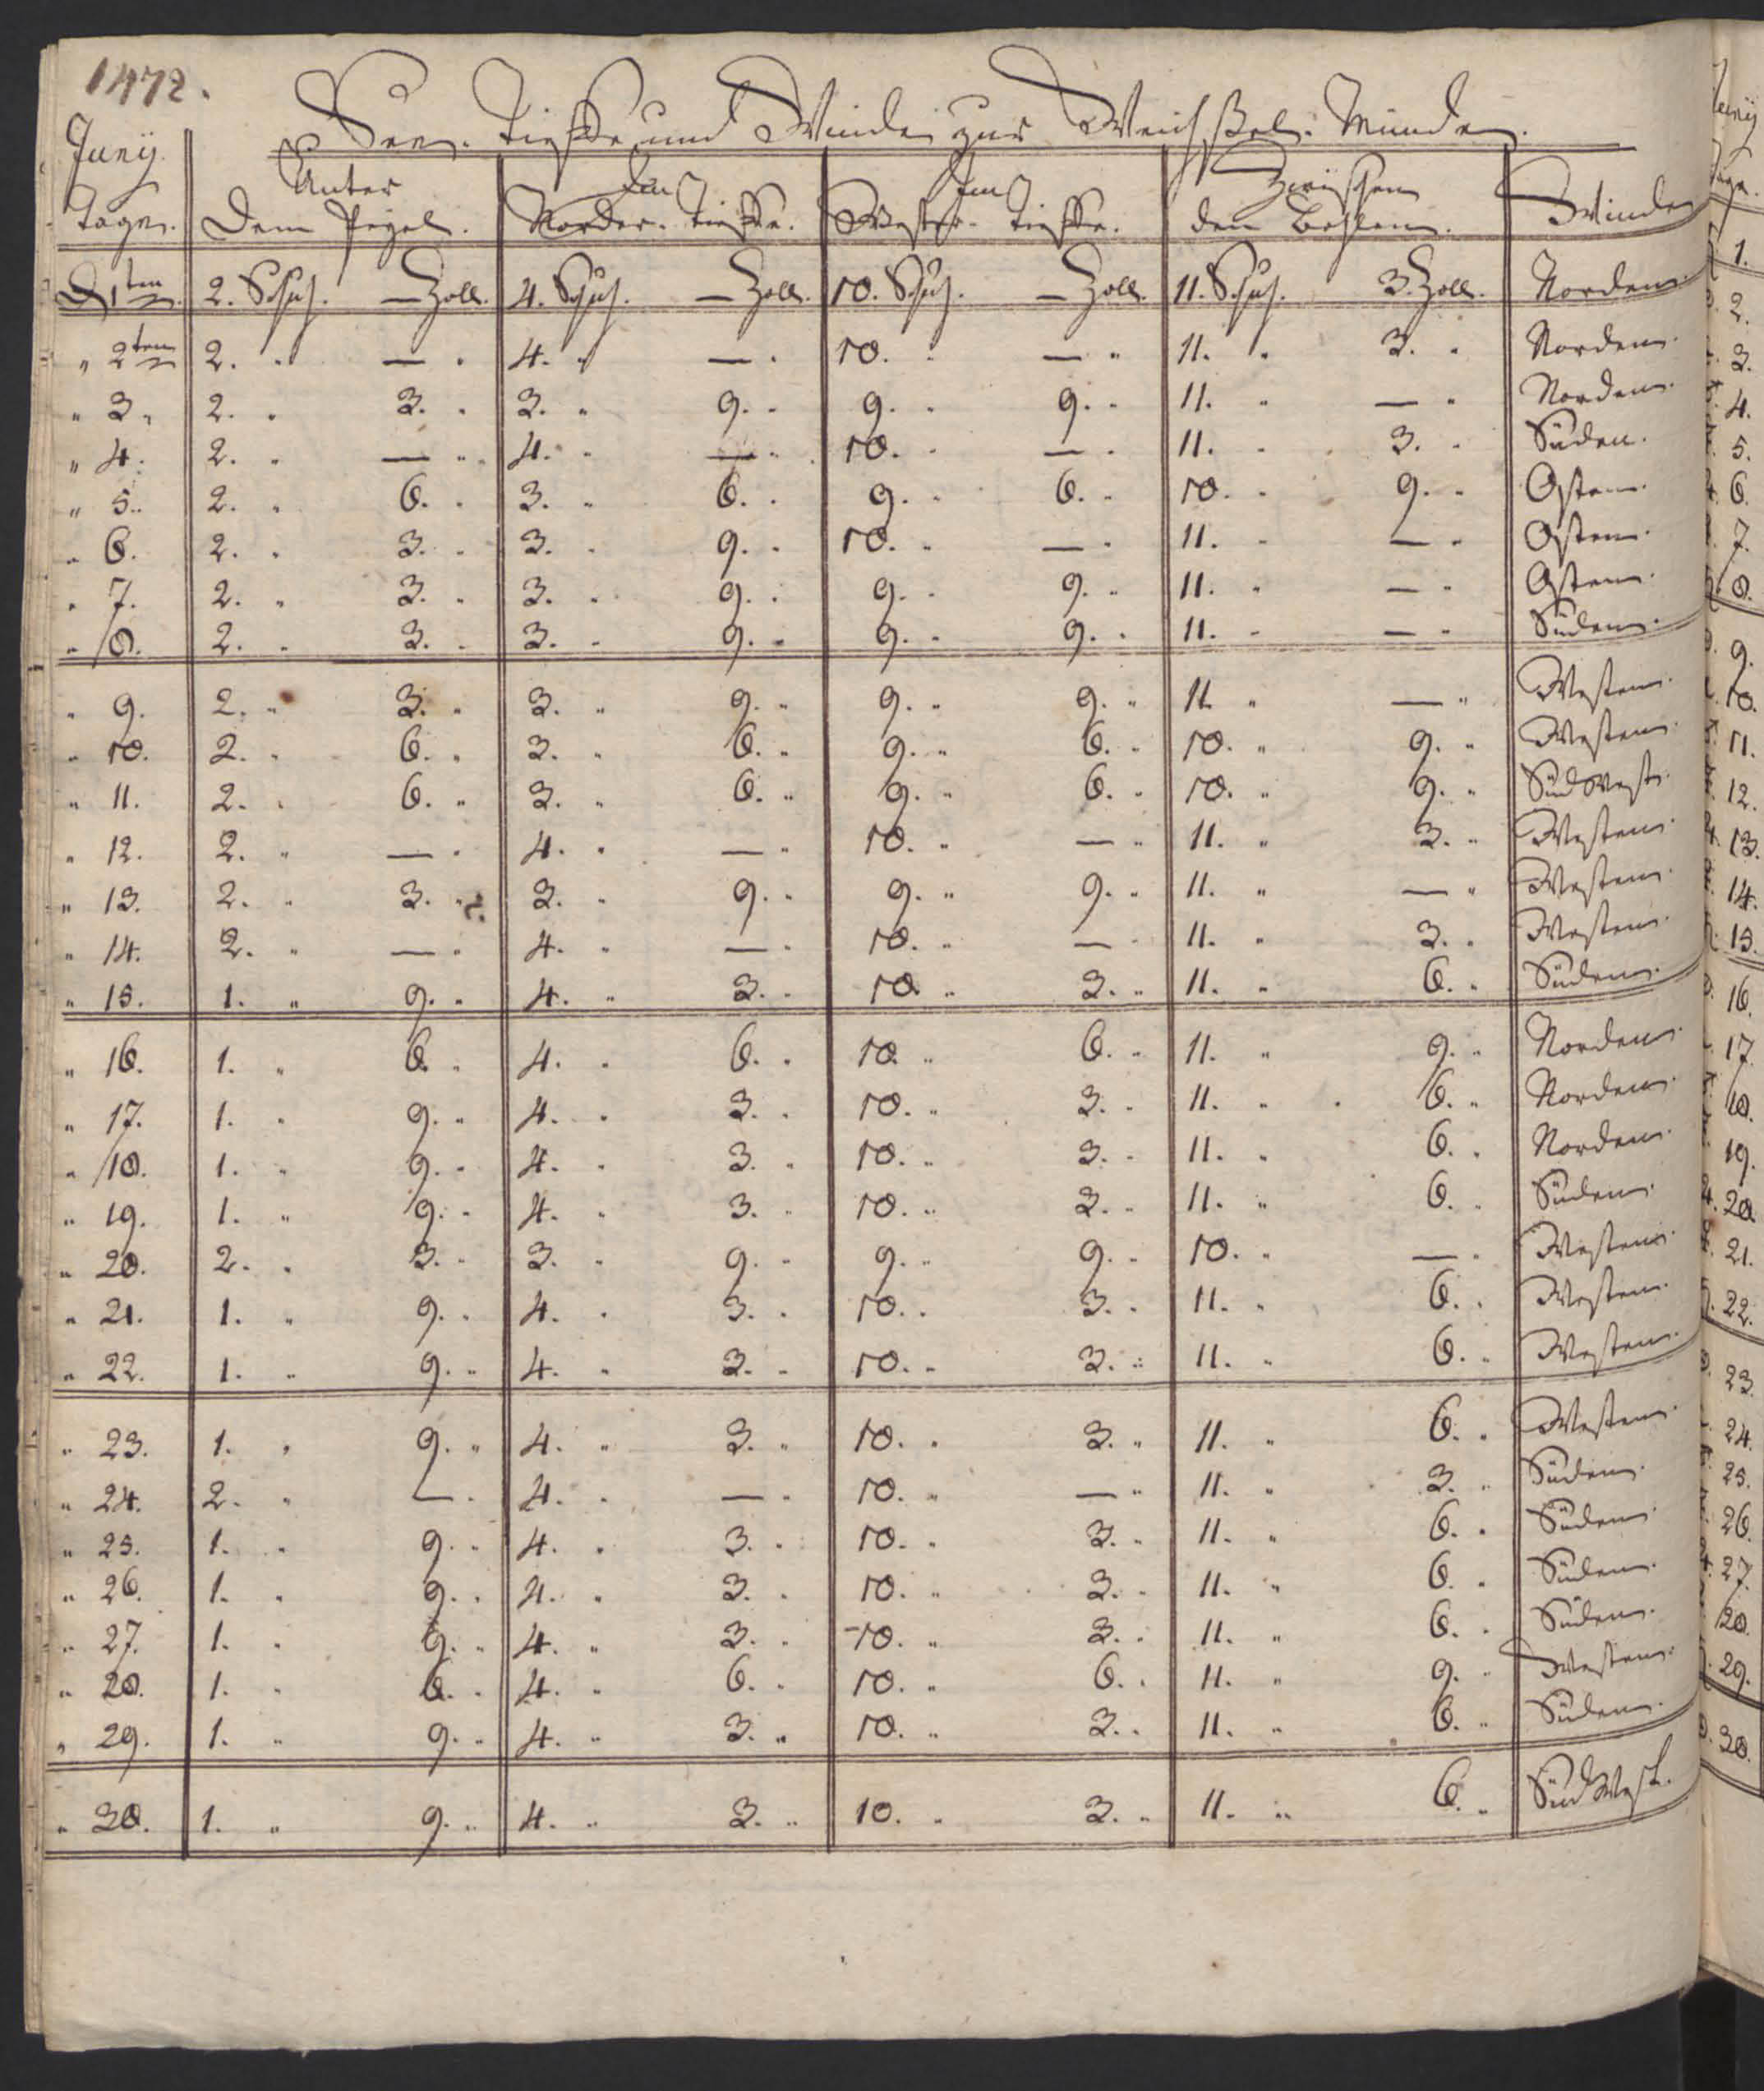 1472.
See. Tieffe und Winde zur Weichßel. Münde.
Junÿ Tage. | Unter Dem Pegel. | Im Norder. Tieffe. | Im Wester. Tieffe. | Zwischen den Bohlen. | Winde
D 1ten | 2. Schuh. — Zoll. | 4. Schuh. — Zoll. | 10. Schuh. — Zoll. | 11. Schuh. 3. Zoll. | Norden.
" 2ten | 2. " — " | 4. " — " | 10. " — " | 11. " 3. " | Norden.
" 3. | 2. " 3. " | 3. " 9. " | 9. " 9. " | 11. " — " | Norden.
" 4. | 2. " — " | 4. " — " | 10. " — " | 11. " 3. " | Süden.
" 5. | 2. " 6. " | 3. " 6. " | 9. " 6. " | 10. " 9. " | Osten.
" 6. | 2. " 3. " | 3. " 9. " | 10. " — " | 11. " — " | Osten.
" 7. | 2. " 3. " | 3. " 9. " | 9. " 9. " | 11. " — " | Osten.
" 8. | 2. " 3. " | 3. " 9. " | 9. " 9. " | 11. " — " | Süden.
" 9. | 2. " 3. " | 3. " 9. " | 9. " 9. " | 11. " — " | Westen.
" 10. | 2. " 6. " | 3. " 6. " | 9. " 6. " | 10. " 9. " | Westen.
" 11. | 2. " 6. " | 3. " 6. " | 9. " 6. " | 10. " 9. " | SüdWest.
" 12. | 2. " — " | 4. " — " | 10. " — " | 11. " 3. " | Westen.
" 13. | 2. " 3. " | 3. " 9. " | 9. " 9. " | 11. " — " | Westen.
" 14. | 2. " — " | 4. " — " | 10. " — " | 11. " 3. " | Westen.
" 15. | 1. " 9. " | 4. " 3. " | 10. " 3. " | 11. " 6. " | Süden.
" 16. | 1. " 6. " | 4. " 6. " | 10. " 6. " | 11. " 9. " | Norden.
" 17. | 1. " 9. " | 4. " 3. " | 10. " 3. " | 11. " 6. " | Norden.
" 18. | 1. " 9. " | 4. " 3. " | 10. " 3. " | 11. " 6. " | Norden.
" 19. | 1. " 9. " | 4. " 3. " | 10. " 3. " | 11. " 6. " | Süden.
" 20. | 2. " 3. " | 3. " 9. " | 9. " 9. " | 10. " — " | Westen.
" 21. | 1. " 9. " | 4. " 3. " | 10. " 3. " | 11. " 6. " | Westen.
" 22. | 1. " 9. " | 4. " 3. " | 10. " 3. " | 11. " 6. " | Westen.
" 23. | 1. " 9. " | 4. " 3. " | 10. " 3. " | 11. " 6. " | Westen.
" 24. | 2. " — " | 4. " — " | 10. " — " | 11. " 3. " | Süden.
" 25. | 1. " 9. " | 4. " 3. " | 10. " 3. " | 11. " 6. " | Süden.
" 26. | 1. " 9. " | 4. " 3. " | 10. " 3. " | 11. " 6. " | Süden.
" 27. | 1. " 9. " | 4. " 3. " | 10. " 3. " | 11. " 6. " | Süden.
" 28. | 1. " 6. " | 4. " 6. " | 10. " 6. " | 11. " 9. " | Westen.
" 29. | 1. " 9. " | 4. " 3. " | 10. " 3. " | 11. " 6. " | Süden.
" 30. | 1. " 9. " | 4. " 3. " | 10. " 3. " | 11. " 6. " | SüdWest.
1.
2.
3.
4.
5.
6.
7.
8.
9.
10.
11.
12.
13.
14.
15.
16.
17.
18.
19.
20.
21.
22.
23.
24.
25.
26.
27.
28.
29.
30.